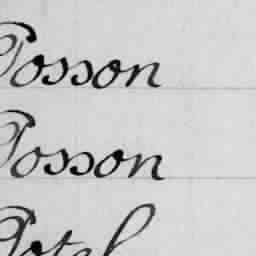 Posson
Posson
Potel